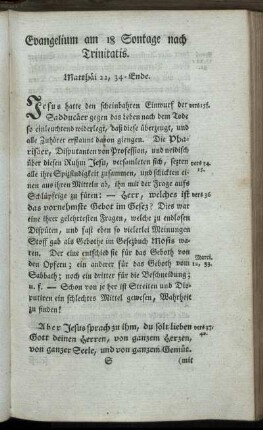 Evangelium am 18 Sontage nach
Trinitatis.
Matthäi 22, 34-Ende.
Jesus hatte den scheinbahren Einwurf der
Sadducäer gegen das Leben nach dem Tode
so einleuchtend widerlegt, daß diese überzeugt, und
alle Zuhörer erstaunt davon giengen. Die Pha-
risäer, Disputanten von Profession, und neidisch
über diesen Ruhm Jesu, versamleten sich, sezten
alle ihre Spizfündigkeit zusammen, und schickten ei-
nen aus ihren Mitteln ab, ihn mit der Frage aufs
Schlüpfrige zu füren: — Herr, welches ist vers 36
das vornehmste Gebot im Gesez? Dies war
eine ihrer gelehrtesten Fragen, welche zu endlosen
Disputen, und fast eben so vielerlei Meinungen
Stoff gab als Geboth im Gesezbuch Mosis wa-
ren. Der eine entschied für das Geboth von
den Opfern; ein anderer für das Geboth vom
Sabbath; noch ein dritter für die Beschneidung;
u. s. — Schon von je her ist Streiten und Dis-
putiren ein schlechtes Mittel gewesen, Wahrheit
zu finden!
Aber Jesus sprach zu ihm, du solt lieben vers 37-
Gott deinen Herren, von ganzem Herzen,
von ganzer Seele, und von ganzem Gemüt.
S (mit